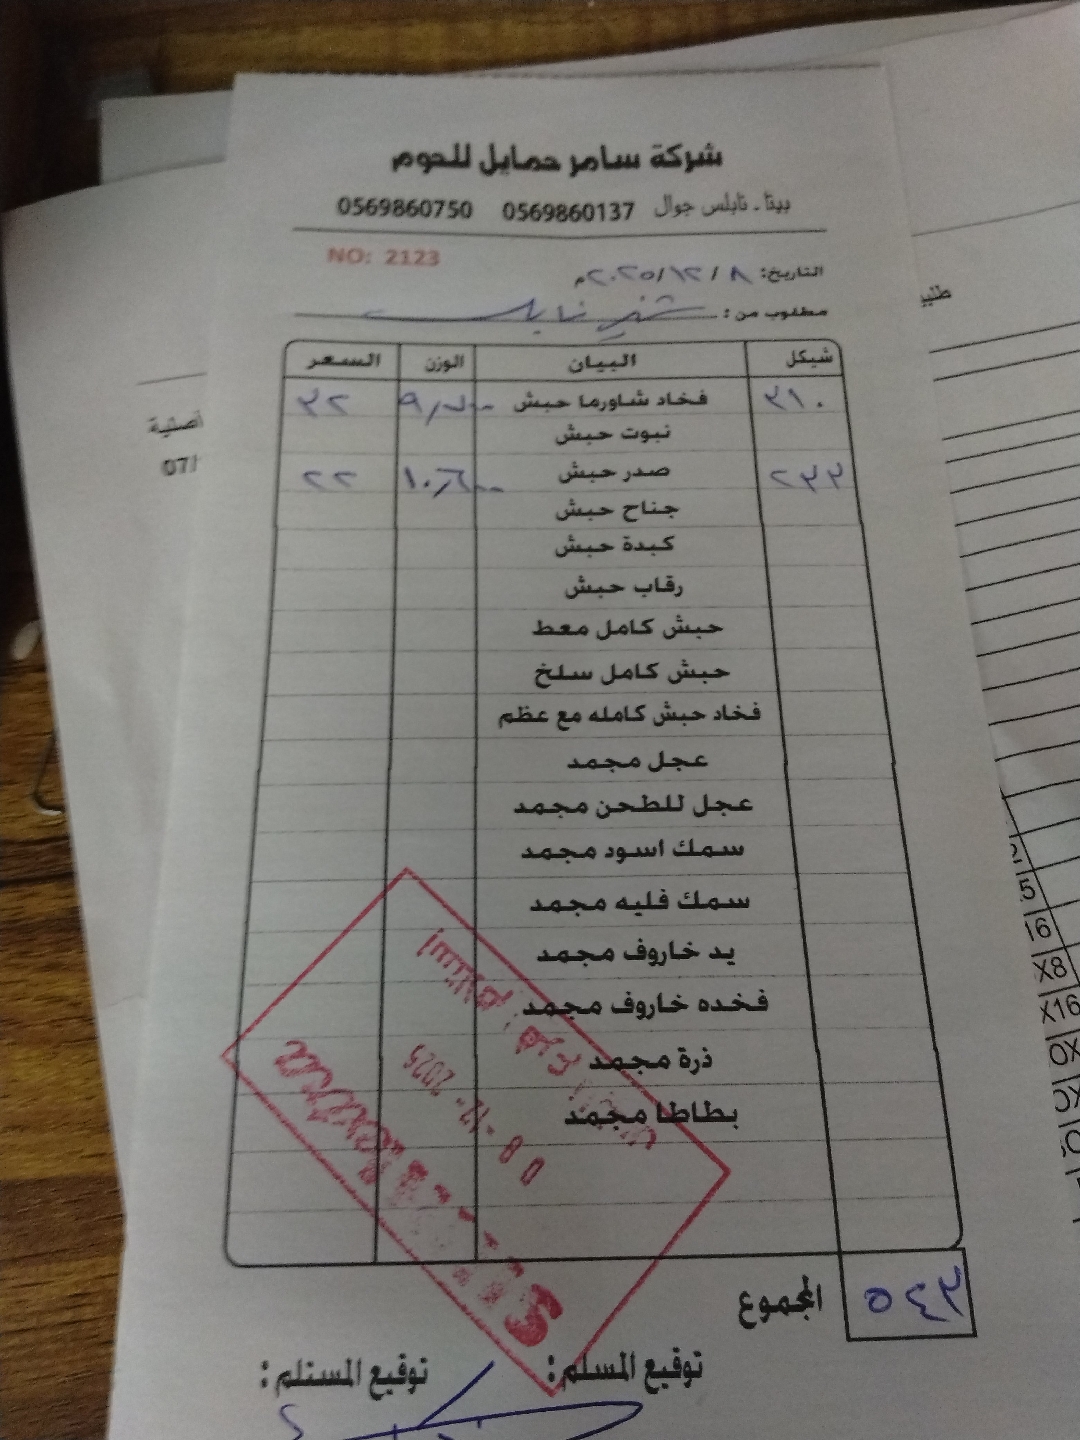 شركة سامر حمايل للحوم
بيتا - نابلس جوال 0569860137 0569860750
NO: 2123
التاريخ: ٨ / ١٢ / ٢٠٢٥م
مطلوب من:
شيكل البيان الوزن السعر
٣١٠ فخاد شاورما حبش ٣٢
نبوت حبش
٢٣٣ صدر حبش ١٠,٦٠٠ ٢٢
جناح حبش
كبدة حبش
رقاب حبش
حبش كامل معط
حبش كامل سلخ
فخاد حبش كامله مع عظم
عجل مجمد
عجل للطحن مجمد
سمك اسود مجمد
سمك فليه مجمد
يد خاروف مجمد
فخده خاروف مجمد
ذرة مجمد
بطاطا مجمد
08 -12- 2025
المجموع ٥٤٣
توقيع المسلم: توقيع المستلم:
07/
5
16
X8
X16